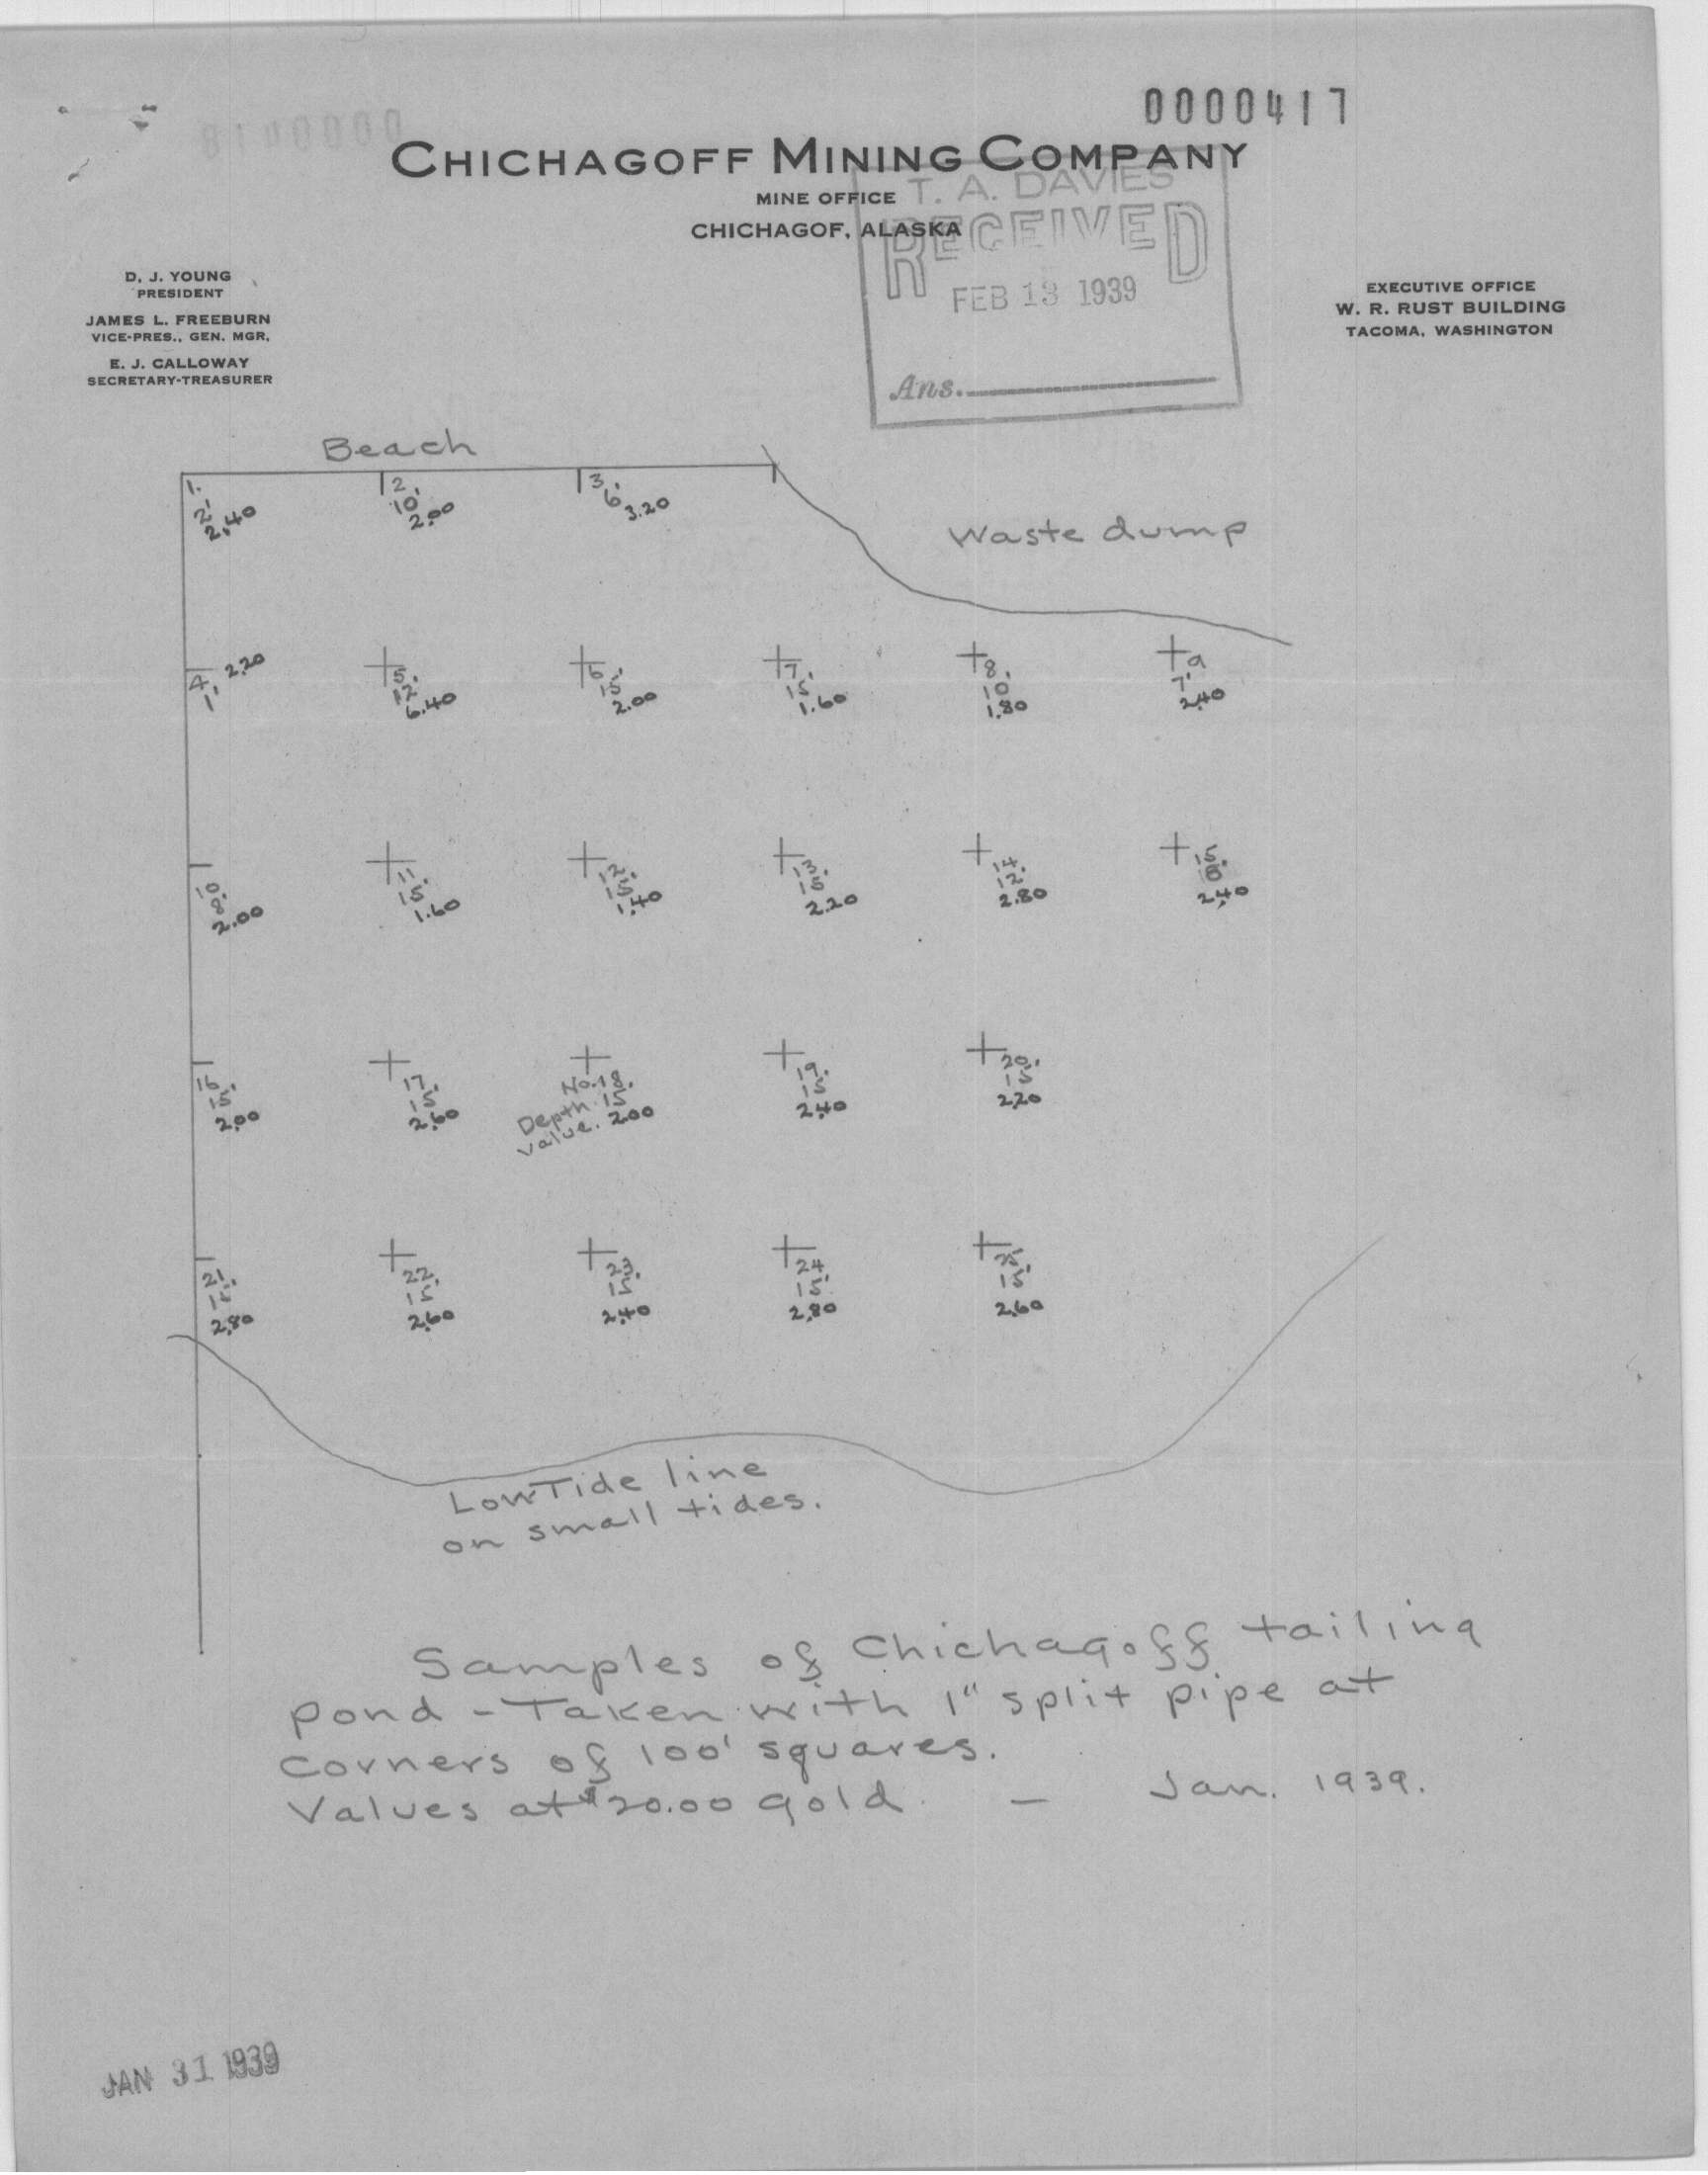 0000417
CHICHAGOFF MINING COMPANY
MINE OFFICE
CHICHAGOF, ALASKA
T. A. DAVIES
RECEIVED
FEB 13 1939
Ans.
D. J. YOUNG
PRESIDENT
JAMES L. FREEBURN
VICE-PRES., GEN. MGR.
E. J. CALLOWAY
SECRETARY-TREASURER
EXECUTIVE OFFICE
W. R. RUST BUILDING
TACOMA, WASHINGTON
Beach
1.
2'
2.40
2.
10'
2.00
3.
6'
3.20
Waste dump
4.
1'
2.20
5.
12'
6.40
6.
15'
2.00
7.
15'
1.60
8.
10
1.80
9
7'
2.40
10.
8'
2.00
11.
15'
1.60
12.
15'
1.40
13.
15'
2.20
14.
12'
2.80
15.
2.40
16.
15'
2.00
17.
15'
2.60
No. 18.
Depth. 15'
Value. 2.00
19.
15'
2.40
20.
15'
2.20
21.
2.80
22.
15
2.60
23.
15'
2.40
24
15'
2.80
25.
15'
2.60
Low Tide line
on small tides.
Samples of Chichagoff tailing
pond - Taken with 1" split pipe at
corners of 100' squares.
Values at $20.00 gold. — Jan. 1939.
JAN 31 1939